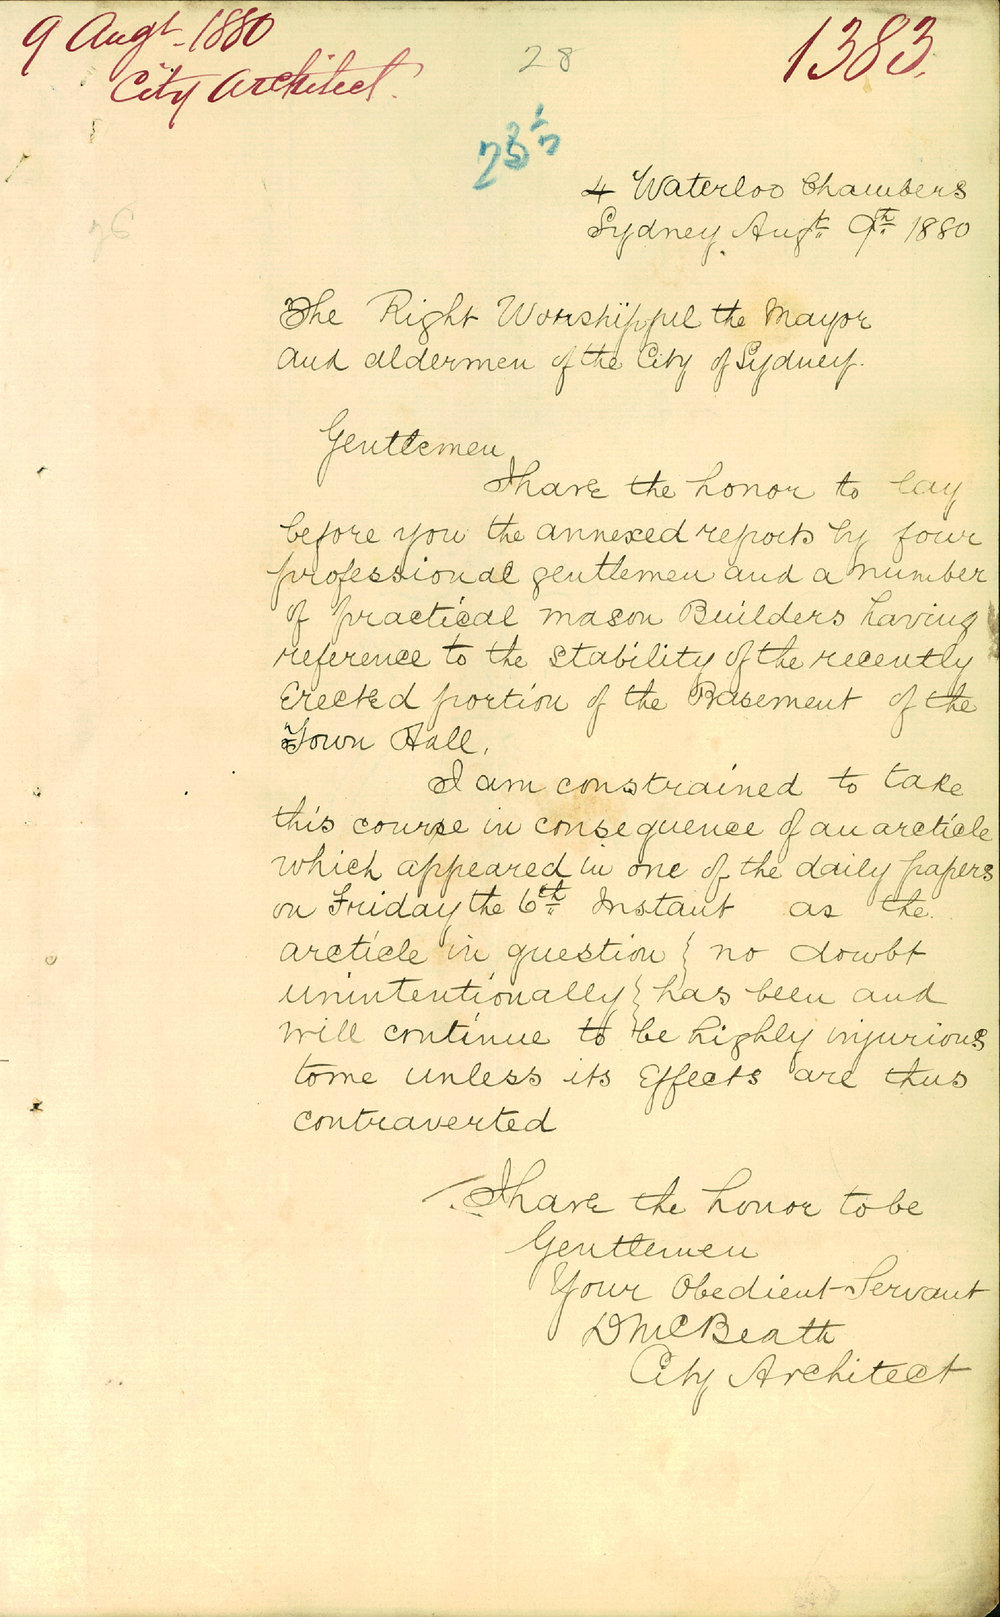 9 Augt. 1880
City Architect.
1383.
28
4 Waterloo Chambers
Sydney Augt. 9th 1880
The Right Worshippul the Mayor
and aldermen of the City of Sydney.
Gentlemen
I have the honor to lay
before you the annexed reports by four
professional gentlemen and a number
of practical mason Builders having
reference to the stability of the recently
Erected portion of the Basement of the
Town Hall.
I am constrained to take
this course in consequence of an arcticle
which appeared in one of the daily papers
on Friday the 6th Instant as the
arcticle in question { no doubt
unintentionally } has been and
will continue to be highly injurious
to me unless its Effects are thus
contraverted
I have the honor to be
Gentlemen
Your Obedient Servant
D McBeath
City Architect